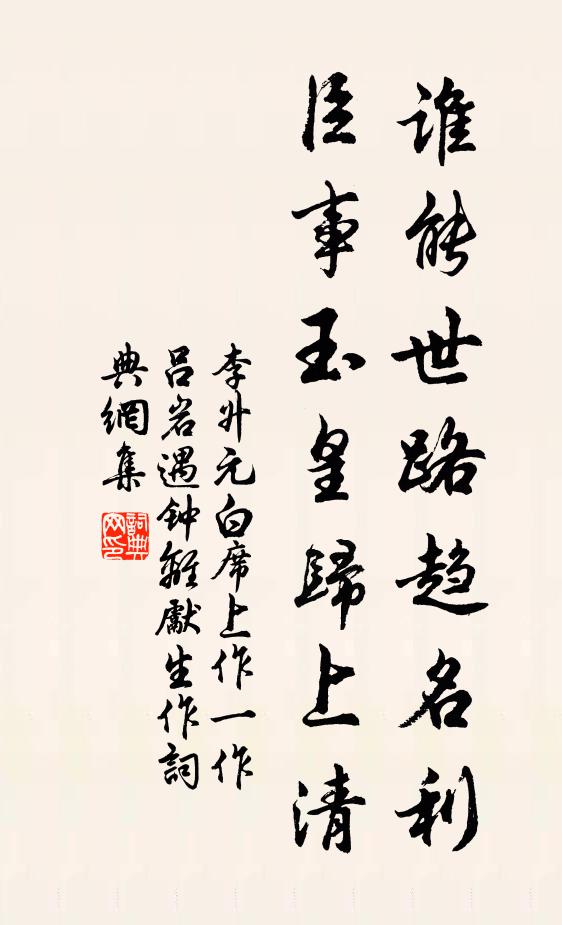 谁能世路趋名利
臣事玉皇歸上清
李升元白席上作一作
吕岩遇钟離獻生作詞
典網集
詞典
网印